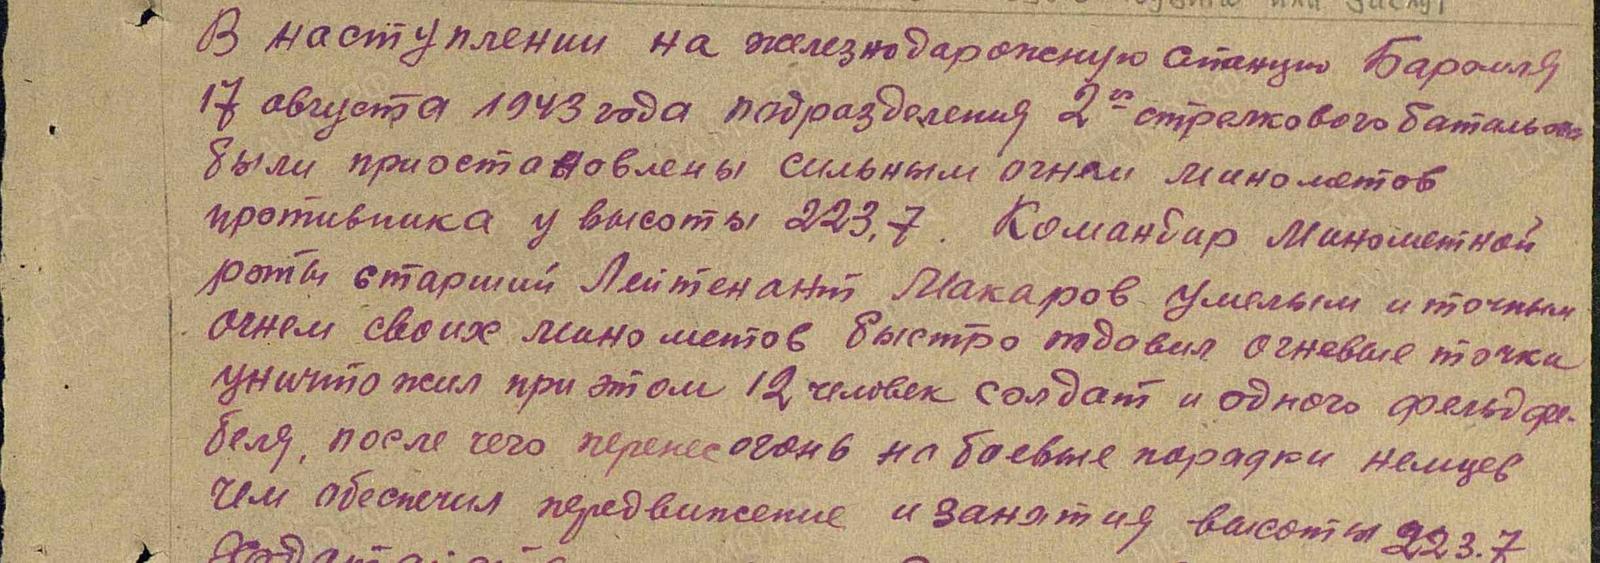 В наступлении на железнодарожную станцию Баромля
17 августа 1943 года подразделения 2го стрелкового батальона
были приостановлены сильным огнем минометов
противника у высоты 223,7. Командир Минометной
роты старший Лейтенант Макаров умелым и точным
огнем своих минометов быстро подавил огневые точки
уничтожил при этом 12 человек солдат и одного фельдфе-
беля, после чего перенес огонь на боевые порядки немцев
чем обеспечил передвижение и занятия высоты 223.7